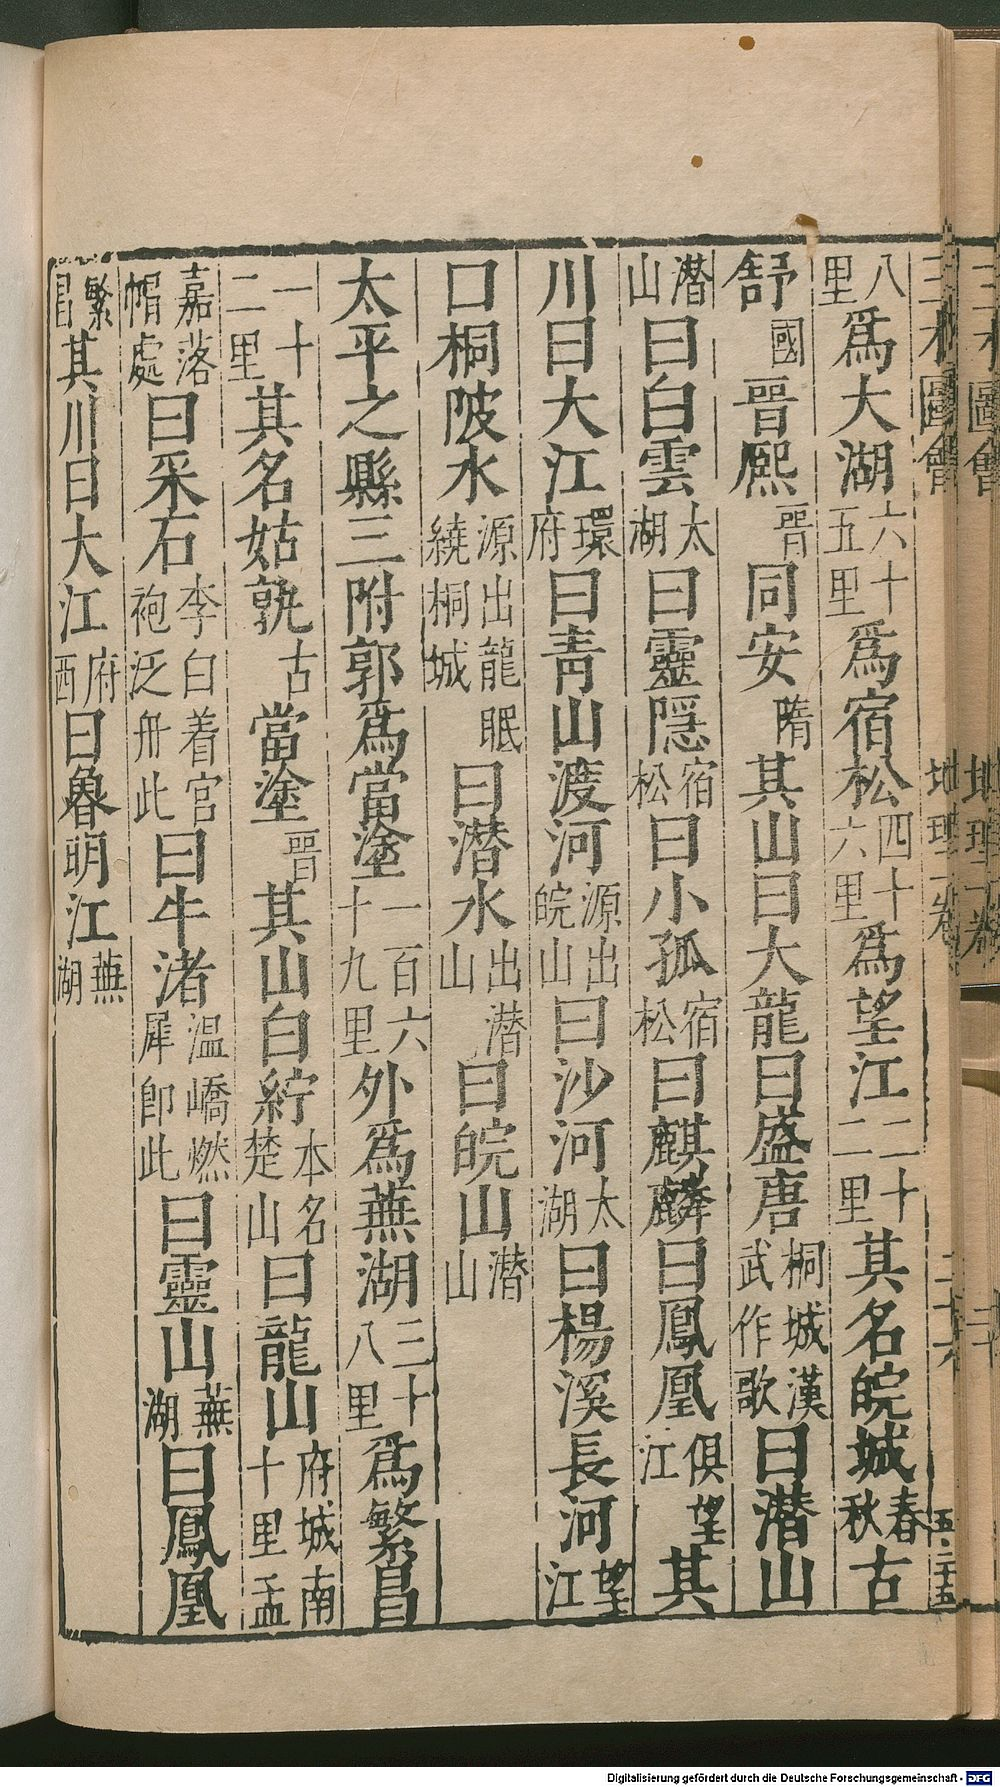 八里爲大湖六十五里爲宿松四十六里爲望江二十二里其名皖城春秋古
舒國晋熈晋同安隋其山曰大龍曰盛唐桐城漢武作歌曰潜山
潜山曰白雲太湖曰靈隠宿松曰小孤宿松曰麒麟曰鳳凰俱望江其
川曰大江環府曰青山渡河源出皖山曰沙河太湖曰楊溪長河望江
口桐陂水源出龍眠繞桐城曰潜水出潜山曰皖山潜山
太平之縣三附郭爲當塗一百六十九里外爲蕪湖三十八里爲繁昌
一十二里其名姑孰古當塗晋其山白紵本名楚山曰龍山府城南十里孟
嘉落帽處曰采石李白着宮袍泛舟此曰牛渚温嶠燃犀即此曰靈山蕪湖曰鳳凰
繁昌其川曰大江府西曰魯明江蕪湖
三才圖會 地理二卷 二十六
Digitalisierung gefördert durch die Deutsche Forschungsgemeinschaft - DFG